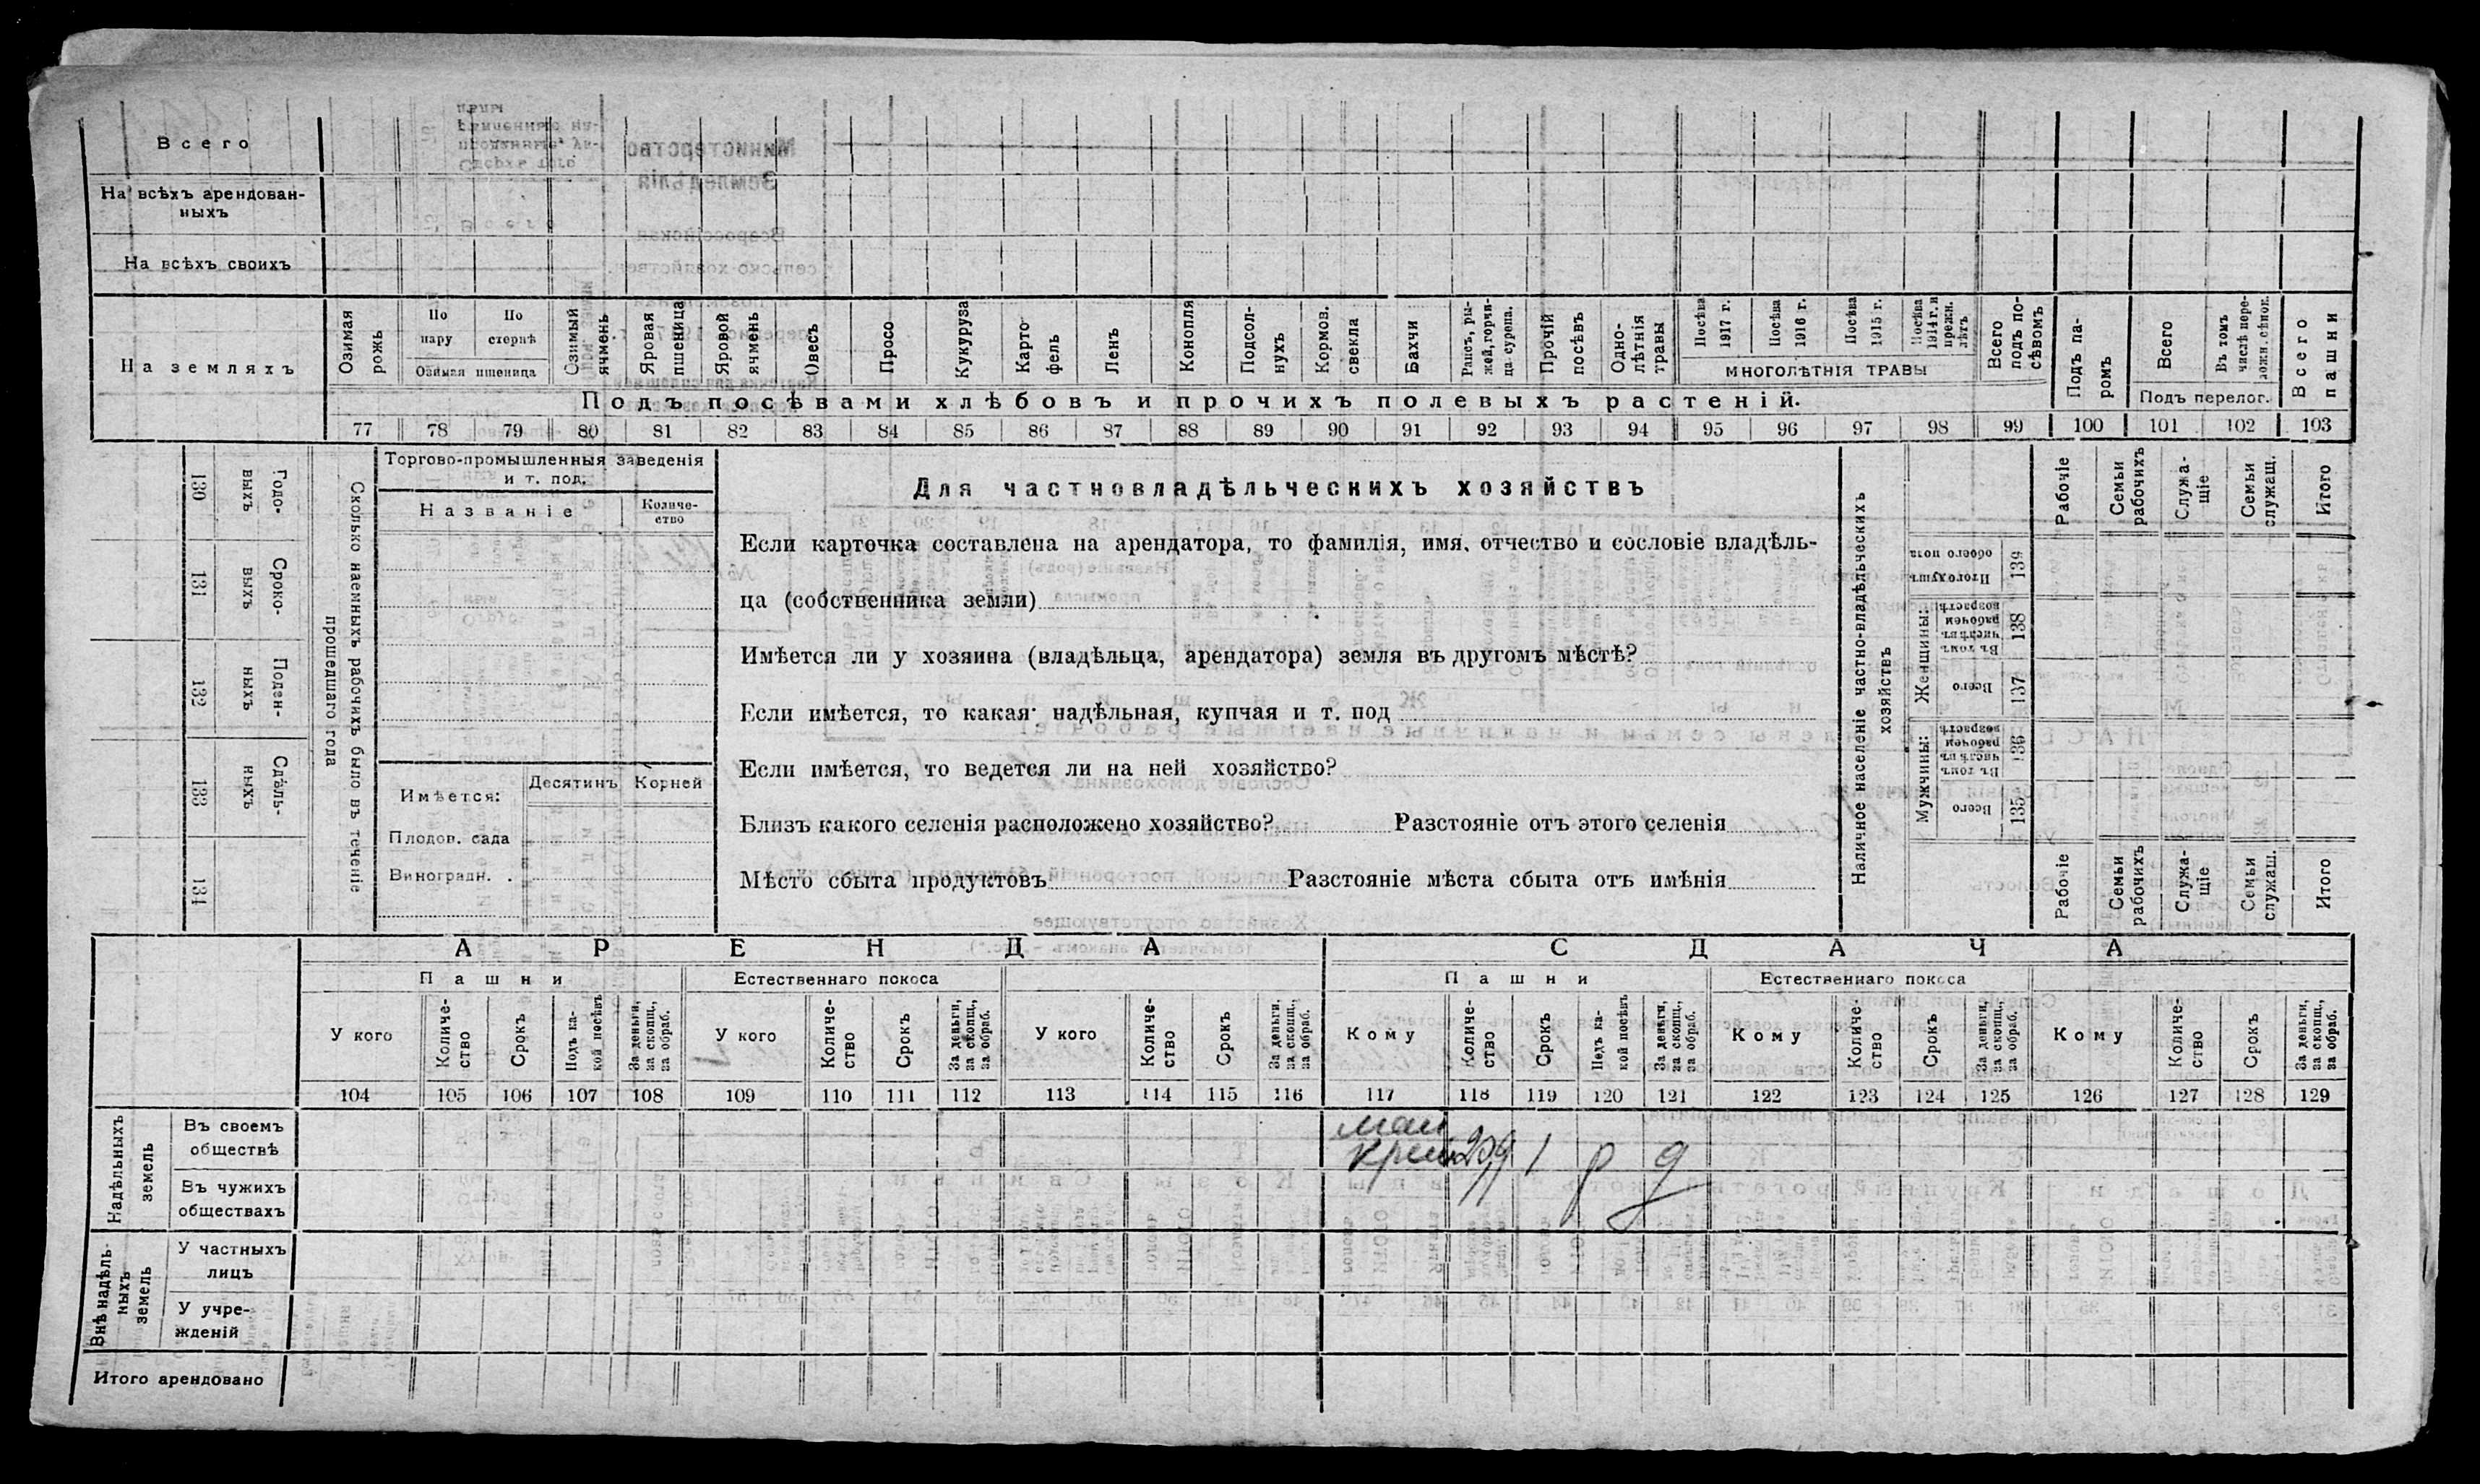 Всего
На всѣхъ арендован-
ныхъ
На всѣхъ своихъ
На земляхъ
Озимая рожь
По пару
По стернѣ
Озимая пшеница
Озимый ячмень
Яровая пшеница
Яровой ячмень
Овесъ
Просо
Кукуруза
Карто-
фель
Ленъ
Конопля
Подсол-
нухъ
Кормов.
свекла
Бахчи
Рапсъ, ры-
жей, горчи-
ца сурепа.
Прочій
посѣвъ
Одно-
лѣтнія
травы
Посѣва
1917 г.
Посѣва
1916 г.
Посѣва
1915 г.
Посѣва
1914 г. и
прежн.
лѣтъ
МНОГОЛѢТНІЯ ТРАВЫ
Всего
подъ по-
сѣвомъ
Подъ па-
ромъ
Всего
Въ томъ
числѣ пере-
ложн. сѣнок.
Подъ перелог.
Всего
пашни
Подъ посѣвами хлѣбовъ и прочихъ полевыхъ растеній.
77 78 79 80 81 82 83 84 85 86 87 88 89 90 91 92 93 94 95 96 97 98 99 100 101 102 103
130 Годо-
выхъ
131 Сроко-
выхъ
132 Поден-
ныхъ
133 Сдѣль-
ныхъ
134
Сколько наемныхъ рабочихъ было въ теченіе
прошедшаго года
Торгово-промышленныя заведенія
и т. под.
Названіе
Количе-
ство
Имѣется:
Десятинъ
Корней
Плодов. сада
Виноградн. .
Для частновладѣльческихъ хозяйствъ
Если карточка составлена на арендатора, то фамилія, имя, отчество и сословіе владѣль-
ца (собственника земли)
Имѣется ли у хозяина (владѣльца, арендатора) земля въ другомъ мѣстѣ?
Если имѣется, то какая: надѣльная, купчая и т. под
Если имѣется, то ведется ли на ней хозяйство?
Близъ какого селенія расположено хозяйство? Разстояніе отъ этого селенія
Мѣсто сбыта продуктовъ Разстояніе мѣста сбыта отъ имѣнія
Наличное населеніе частно-владѣльческихъ
хозяйствъ
Рабочіе
Семьи
рабочихъ
Служа-
щіе
Семьи
служащ.
Итого
Итого душъ
обоего пола
139
Женщины:
Въ томъ
числѣ въ
рабочем
возрастѣ
138
Всего
137
Мужчины:
Въ томъ
числѣ въ
рабочем
возрастѣ
136
Всего
135
Рабочіе
Семьи
рабочихъ
Служа-
щіе
Семьи
служащ.
Итого
АРЕНДА
СДАЧА
Пашни
Естественнаго покоса
Пашни
Естественнаго покоса
У кого
Количе-
ство
Срокъ
Подъ ка-
кой посѣвъ
За деньги,
за скопщ.,
за обраб.
У кого
Количе-
ство
Срокъ
За деньги,
за скопщ.,
за обраб.
У кого
Количе-
ство
Срокъ
За деньги,
за скопщ.,
за обраб.
Кому
Количе-
ство
Срокъ
Подъ ка-
кой посѣвъ
За деньги,
за скопщ.,
за обраб.
Кому
Количе-
ство
Срокъ
За деньги,
за скопщ.,
за обраб.
Кому
Количе-
ство
Срокъ
За деньги,
за скопщ.,
за обраб.
104 105 106 107 108 109 110 111 112 113 114 115 116 117 118 119 120 121 122 123 124 125 126 127 128 129
Надѣльныхъ
земель
Въ своемъ
обществѣ
1 р д
Въ чужихъ
обществахъ
Внѣ надѣль-
ныхъ
земель
У частныхъ
лицъ
У учре-
жденій
Итого арендовано